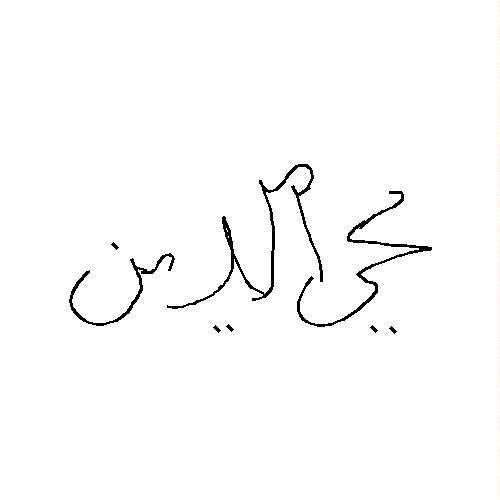 محي الدين